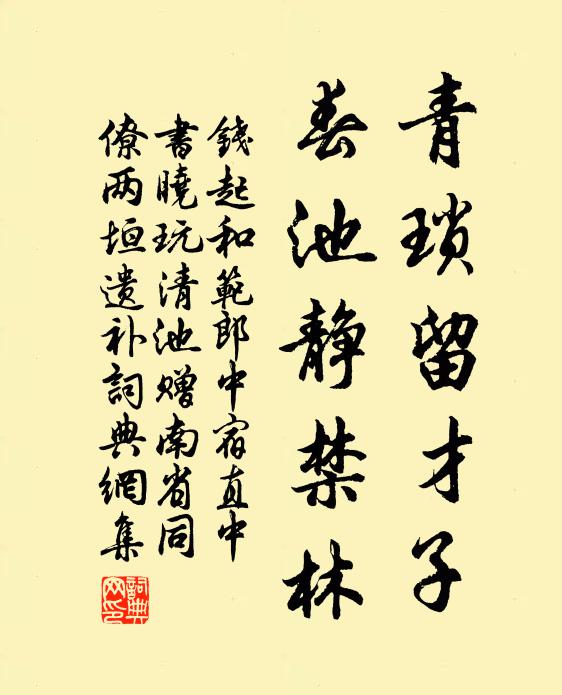 青瑣留才子
春池静禁林
錢起和範郎中宿直中
書曉玩清池赠南省同
僚两垣遗补詞典網集
詞典网印